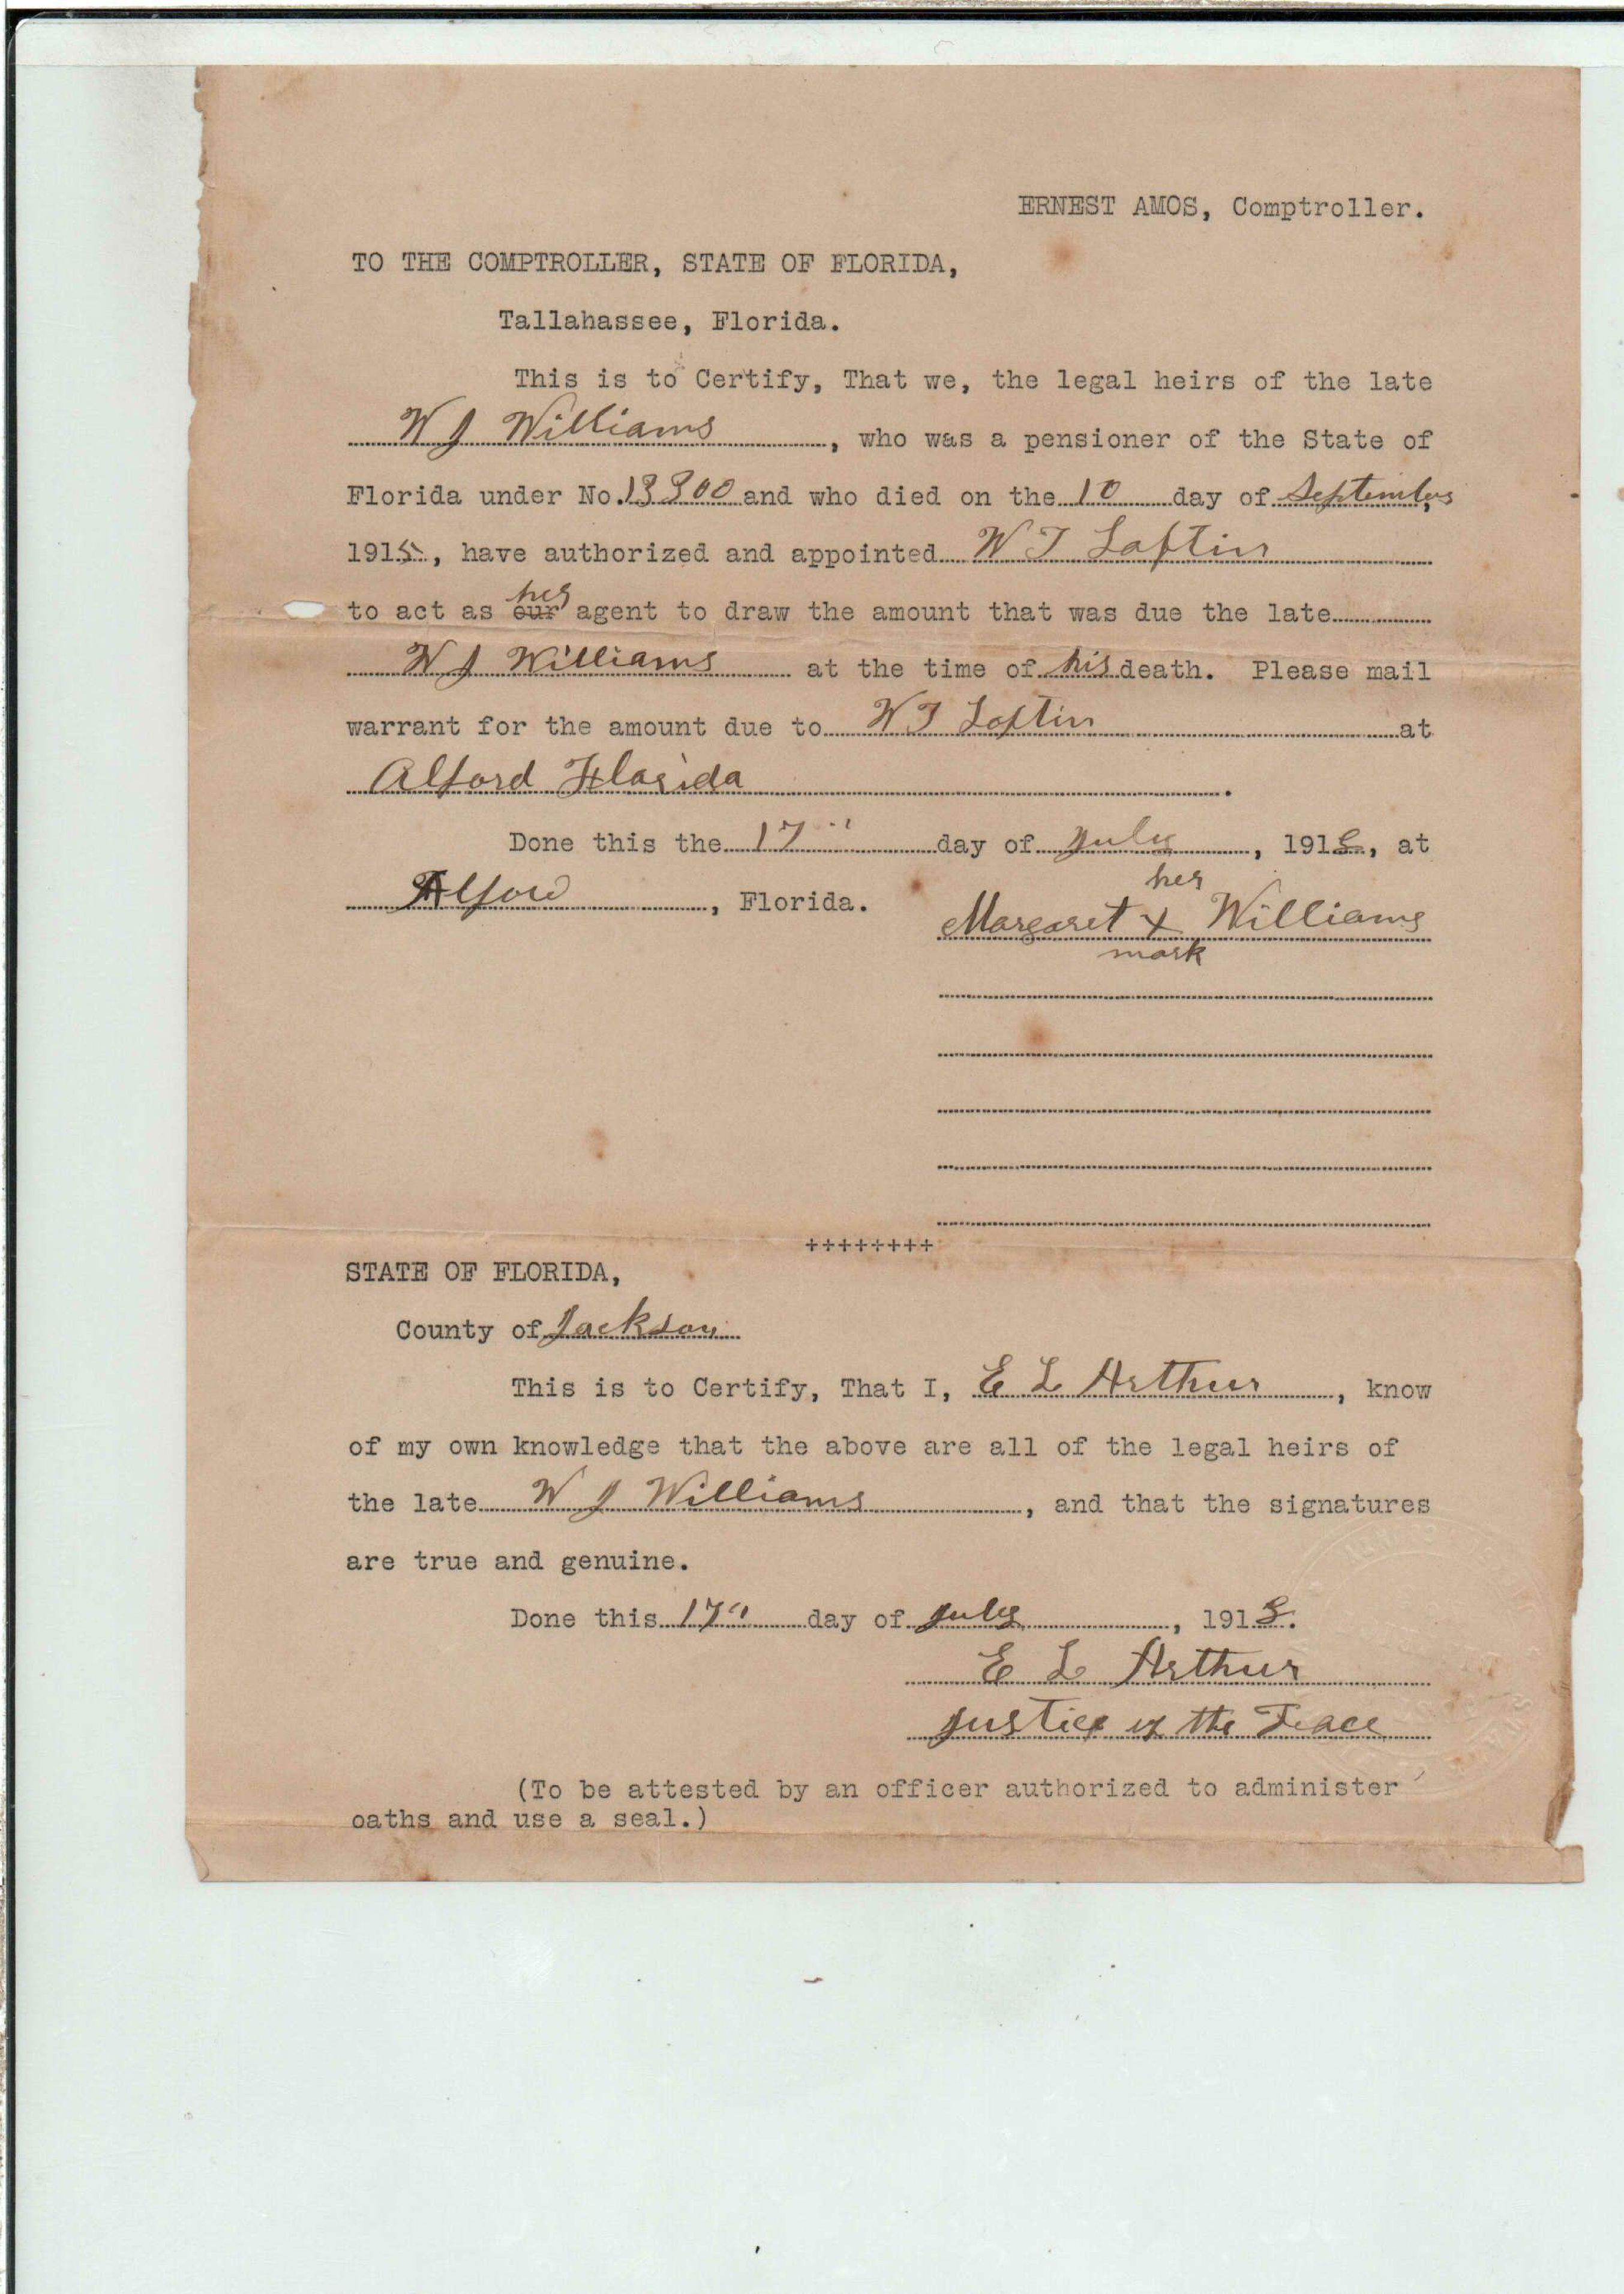 ERNEST AMOS, Comptroller.
TO THE COMPTROLLER, STATE OF FLORIDA,
Tallahassee, Florida.
This is to Certify, That we, the legal heirs of the late
W J Williams, who was a pensioner of the State of
Florida under No. 13300 and who died on the 10 day of September,
1915, have authorized and appointed W T Loftin
to act as our her agent to draw the amount that was due the late
W J Williams at the time of his death. Please mail
warrant for the amount due to W T Loftin at
Alford Florida.
Done this the 17" day of July, 1918, at
Alford, Florida.
her
Margaret x Williams
mark
++++++++
STATE OF FLORIDA,
County of Jackson
This is to Certify, That I, E L Arthur, know
of my own knowledge that the above are all of the legal heirs of
the late W J Williams, and that the signatures
are true and genuine.
Done this 17" day of July, 1918.
E L Arthur
Justice of the Peace
(To be attested by an officer authorized to administer
oaths and use a seal.)